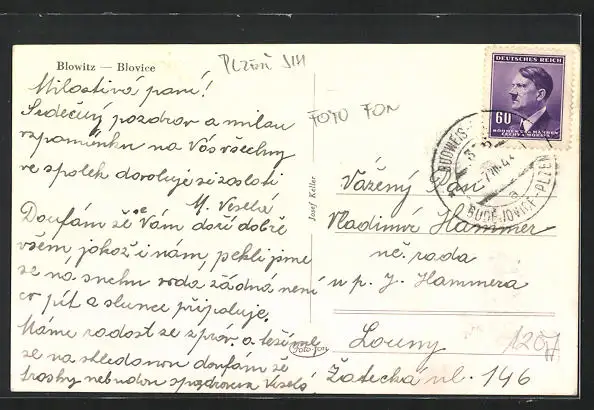 Blowitz — Blovice
PLZEŇ JIH
FOTO FON
Milostivá paní!
Srdečný pozdrav a milou
vzpomínku na Vás všechny
ve spolek dovoluje si zaslati
M. Veselá
Doufám že se Vám daří dobře
všem, jakož i nám, pekli jsme
se na snehu voda žádná není
co pít a slunce připaluje.
Máme radost ze zpráv. a těšíme
se na shledanou doufám že
trosky nebudou Veselá
Josef Keller
Foto-fon
DEUTSCHES REICH
60
BÖHMEN u. MÄHREN
ČECHY a MORAVA
BUDWEIS
BUDĚJOVICE-PLZEŇ
Vážený Pan
Vladimír Hammer
uč. rada
u p. J. Hammera
Louny
Žatecká ul. 146
120